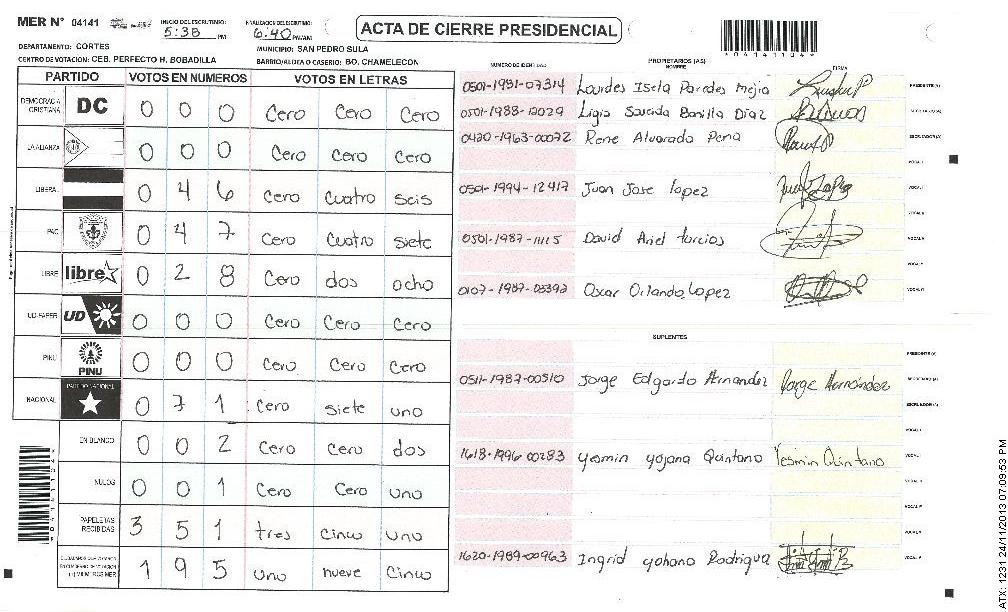 MER N° 04141
INICIO DEL ESCRUTINIO:
5:38 PM
FINALIZACION DEL ESCRUTINIO:
6:40 PM/AM
ACTA DE CIERRE PRESIDENCIAL
04141104
DEPARTAMENTO: CORTES
MUNICIPIO: SAN PEDRO SULA
CENTRO DE VOTACION: CEB. PERFECTO H. BOBADILLA
BARRIO/ALDEA O CASERIO: BO. CHAMELECON
PARTIDO VOTOS EN NUMEROS VOTOS EN LETRAS
DEMOCRACIA CRISTIANA DC 0 0 0 Cero Cero Cero
LA ALIANZA 0 0 0 Cero Cero Cero
LIBERAL 0 4 6 Cero Cuatro seis
PAC 0 4 7 Cero Cuatro siete
LIBRE libre 0 2 8 Cero dos ocho
UD-FAPER UD 0 0 0 Cero Cero Cero
PINU PINU 0 0 0 Cero Cero Cero
NACIONAL PARTIDO NACIONAL 0 7 1 Cero siete uno
EN BLANCO 0 0 2 Cero Cero dos
NULOS 0 0 1 Cero Cero uno
PAPELETAS RECIBIDAS 3 5 1 tres Cinco uno
1 9 5 uno nueve Cinco
NUMERO DE IDENTIDAD PROPIETARIOS (AS) NOMBRE FIRMA
0501-1991-07314 Lourdes Isela Paredes Mejia PRESIDENTE(A)
0501-1988-12029 Ligia Sauceda Bonilla Diaz SECRETARIO(A)
0420-1963-00072 Rene Alvarado Pena ESCRUTADOR(A)
VOCAL I
0501-1994-12417 Juan Jose Lopez
0501-1987-11115 David Ariel turcios
0107-1987-03392 Oscar Orlando Lopez
SUPLENTES
PRESIDENTE (A)
0511-1987-00510 Jorge Edgardo Hernandez Jorge Hernández SECRETARIO(A)
ESCRUTADOR(A)
1618-1996-00283 Yesmin yojana Quintano Yesmin Quintano VOCAL I
1620-1989-00963 Ingrid yohana Rodrigua
ATX: 1231 24/11/2013 07:09:53 PM